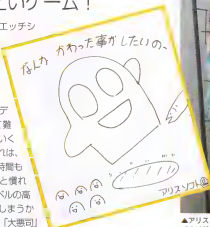 たいゲーム！
エッチシ
なんか かわった事がしたいの、
アリスソフト
デ
難
いく
れは、
時間も
と慣れ
ベルの高
しまうか
「大悪司」
▲アリス